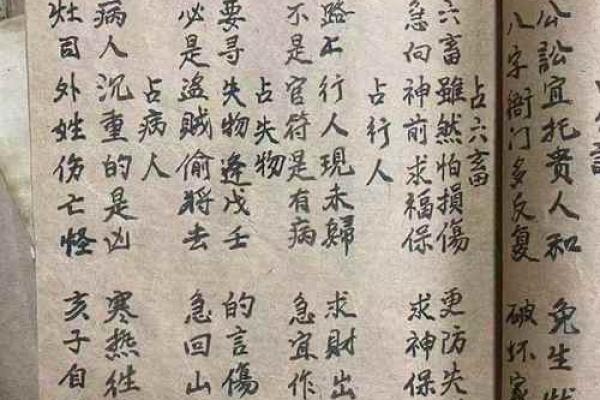 公訟宜托贵人和 免生
八字衙门多反复 破坏家
占六畜
六畜雖然怕損傷 更防失
急向神前求福保 求神保
占行人
路上行人現未婦 求財出
不是官符是有病 急宜作
占失物
要寻失物逢戊壬 的言傷
必是盗賊偷将去 急回山
占病人
病人沉重的是凶 寒热往
灶司外姓伤亡怪 亥子自